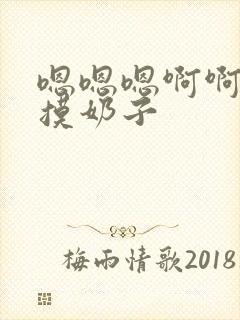 嗯嗯嗯啊啊
摸奶子
梅雨情歌2018